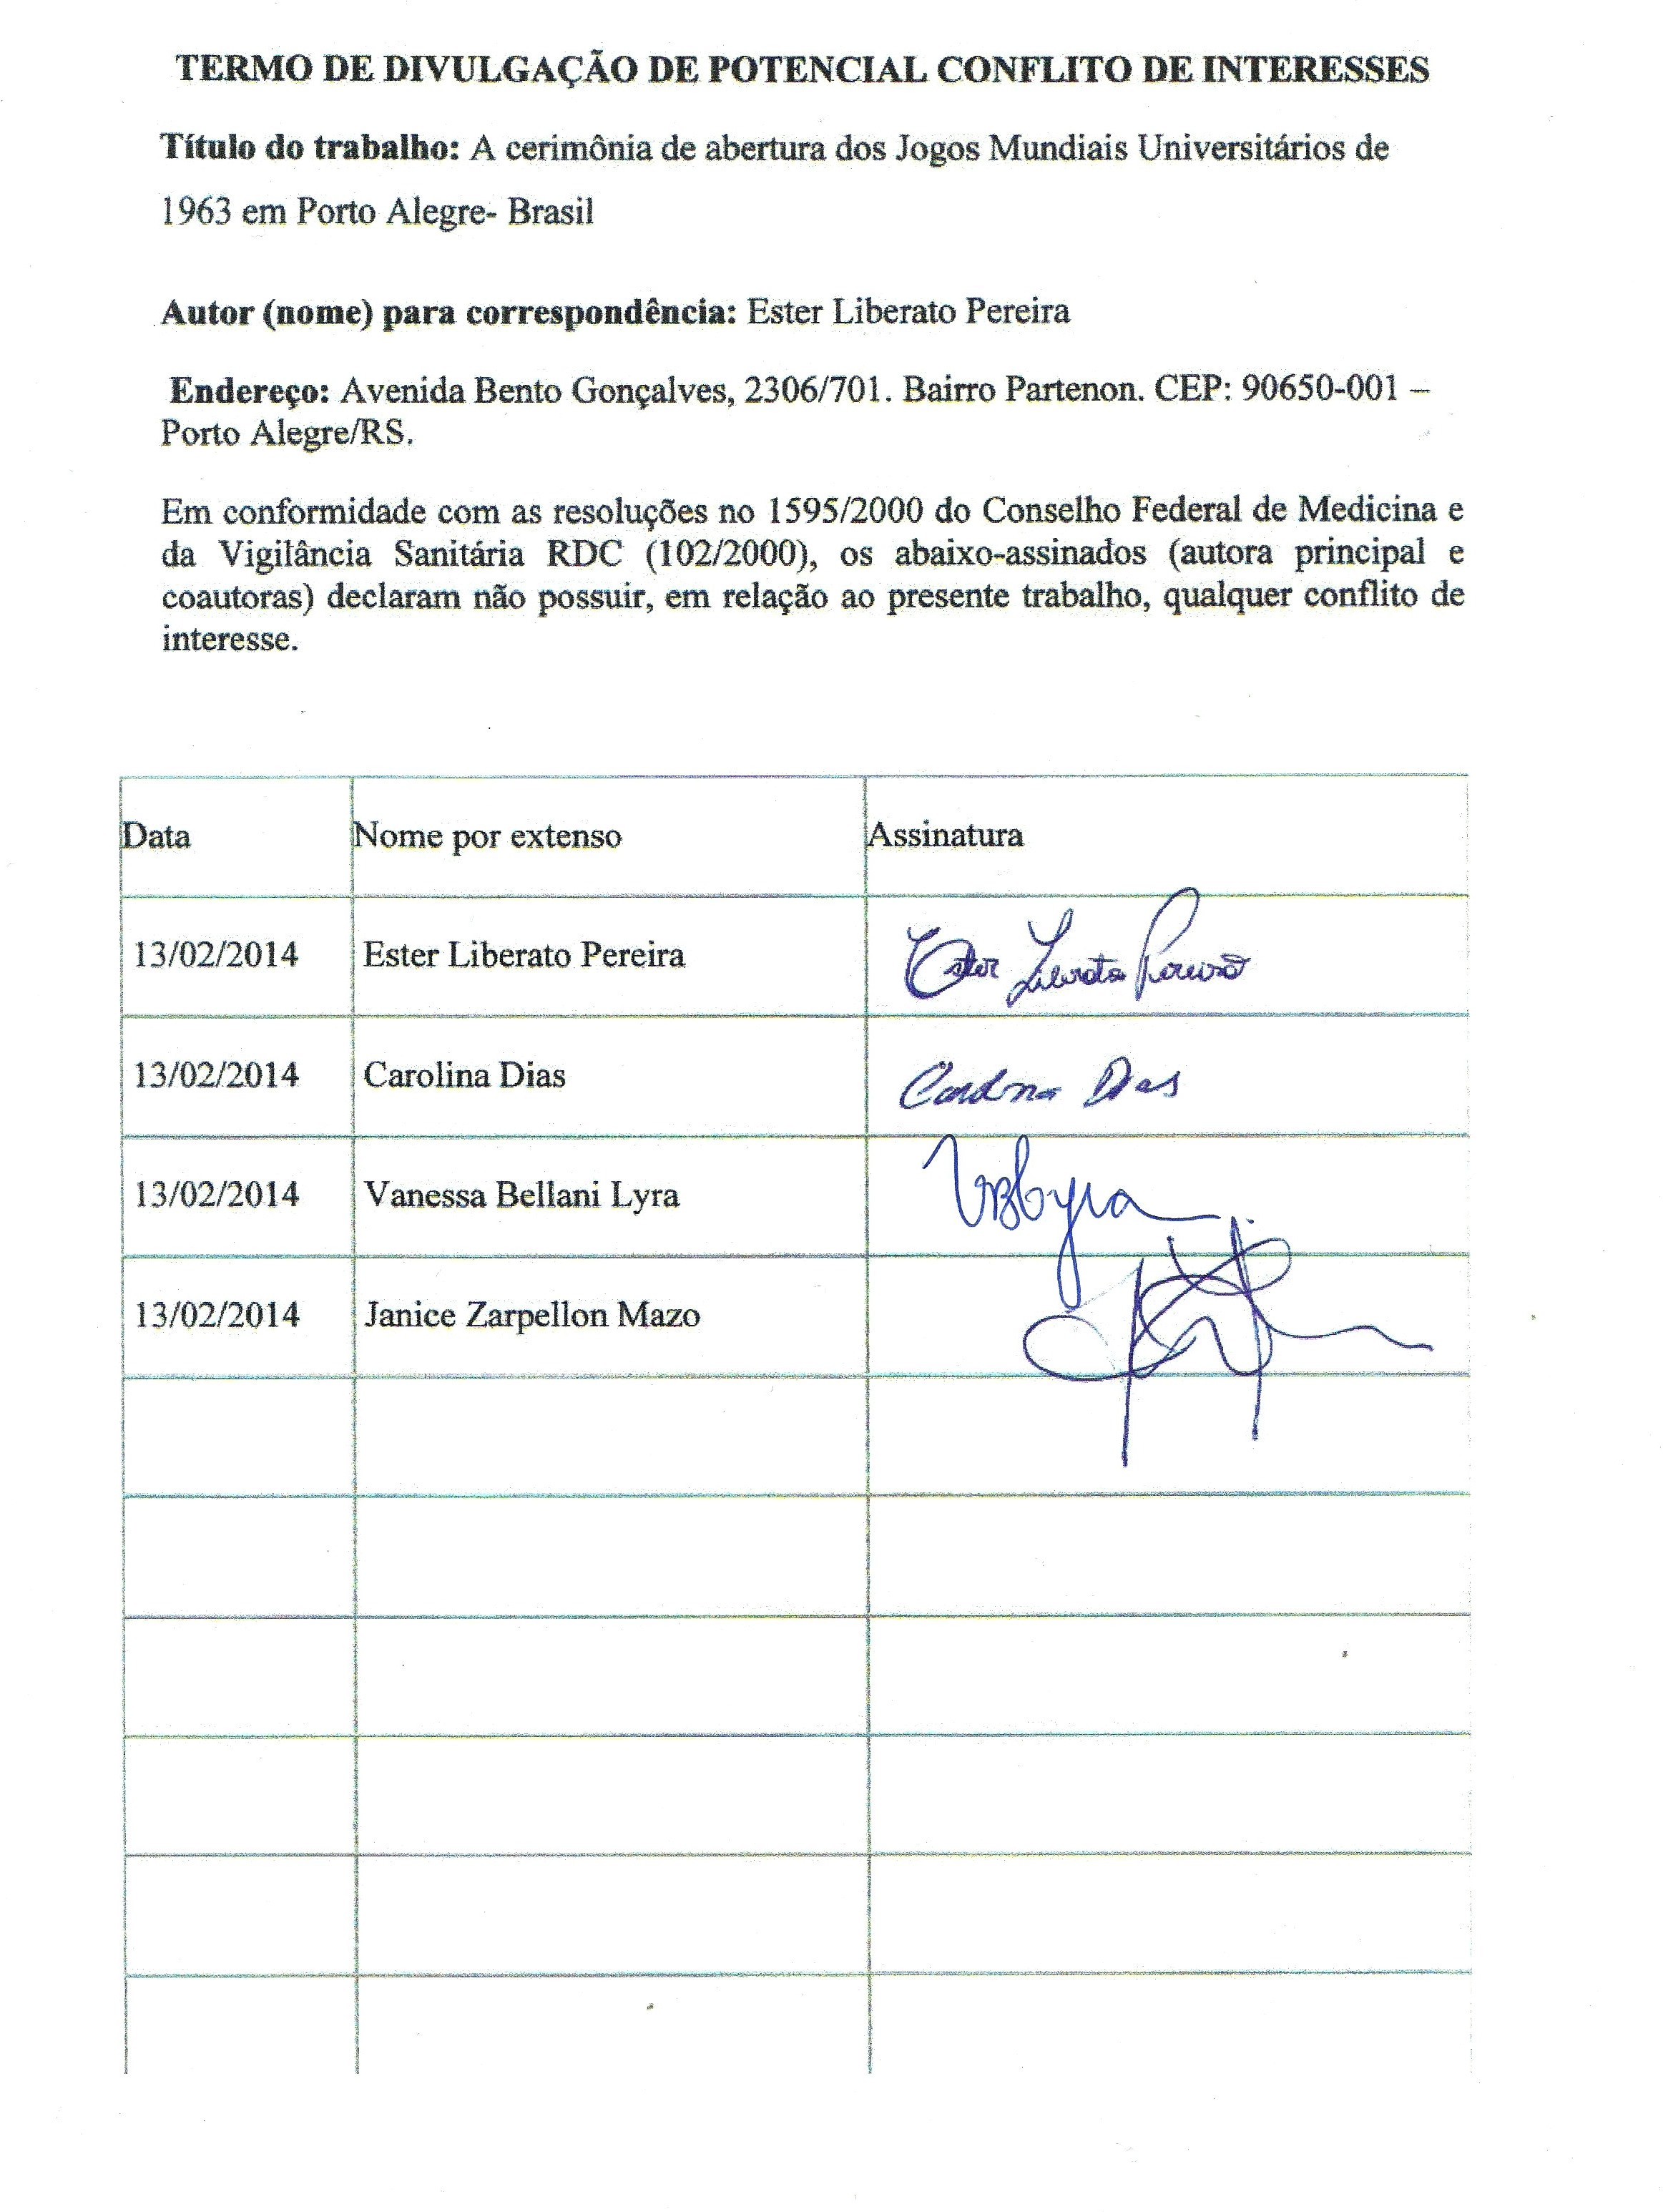 TERMO DE DIVULGAÇÃO DE POTENCIAL CONFLITO DE INTERESSES
Título do trabalho: A cerimônia de abertura dos Jogos Mundiais Universitários de
1963 em Porto Alegre- Brasil
Autor (nome) para correspondência: Ester Liberato Pereira
Endereço: Avenida Bento Gonçalves, 2306/701. Bairro Partenon. CEP: 90650-001 –
Porto Alegre/RS.
Em conformidade com as resoluções no 1595/2000 do Conselho Federal de Medicina e
da Vigilância Sanitária RDC (102/2000), os abaixo-assinados (autora principal e
coautoras) declaram não possuir, em relação ao presente trabalho, qualquer conflito de
interesse.
Data Nome por extenso Assinatura
13/02/2014 Ester Liberato Pereira Ester Liberato Pereira
13/02/2014 Carolina Dias Carolina Dias
13/02/2014 Vanessa Bellani Lyra VBLyra
13/02/2014 Janice Zarpellon Mazo